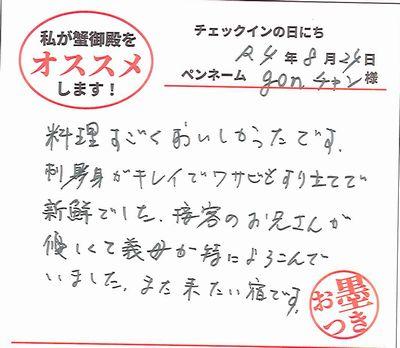 私が蟹御殿を
オススメ
します!
チェックインの日にち
R4年8月24日
ペンネーム gon.チャン様
料理すごくおいしかったです.
刺身がキレイでワサビもすり立てで
新鮮でした.接客のお兄さんが
優しくて義母が特によろこんで
いました.また来たい宿です.
お墨つき